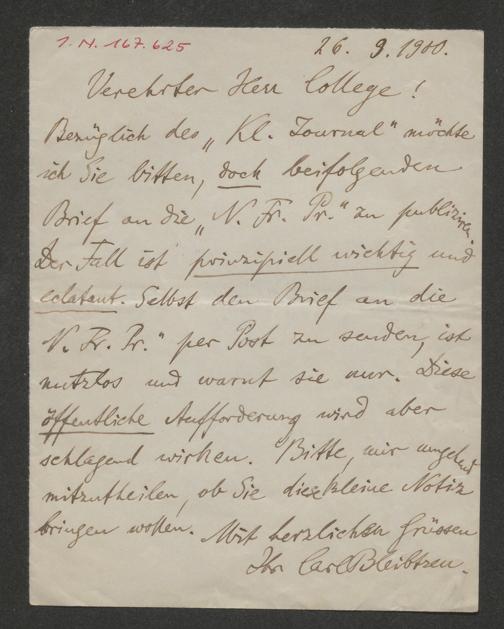 I. N. 167.625
26. 9. 1900.
Verehrter Herr College!
Bezüglich des „Kl. Journal" möchte
ich Sie bitten, doch beifolgenden
Brief an die „N. Fr. Pr." zu publiziren.
Der Fall ist prinzipiell wichtig und
eclatant. Selbst den Brief an die
N. Fr. Pr." per Post zu senden, ist
nutzlos und warnt sie nur. Diese
öffentliche Aufforderung wird aber
schlagend wirken. Bitte, mir umgehend
mitzutheilen, ob Sie diese kleine Notiz
bringen wollen. Mit herzlichen Grüssen
Ihr Carl Bleibtreu.